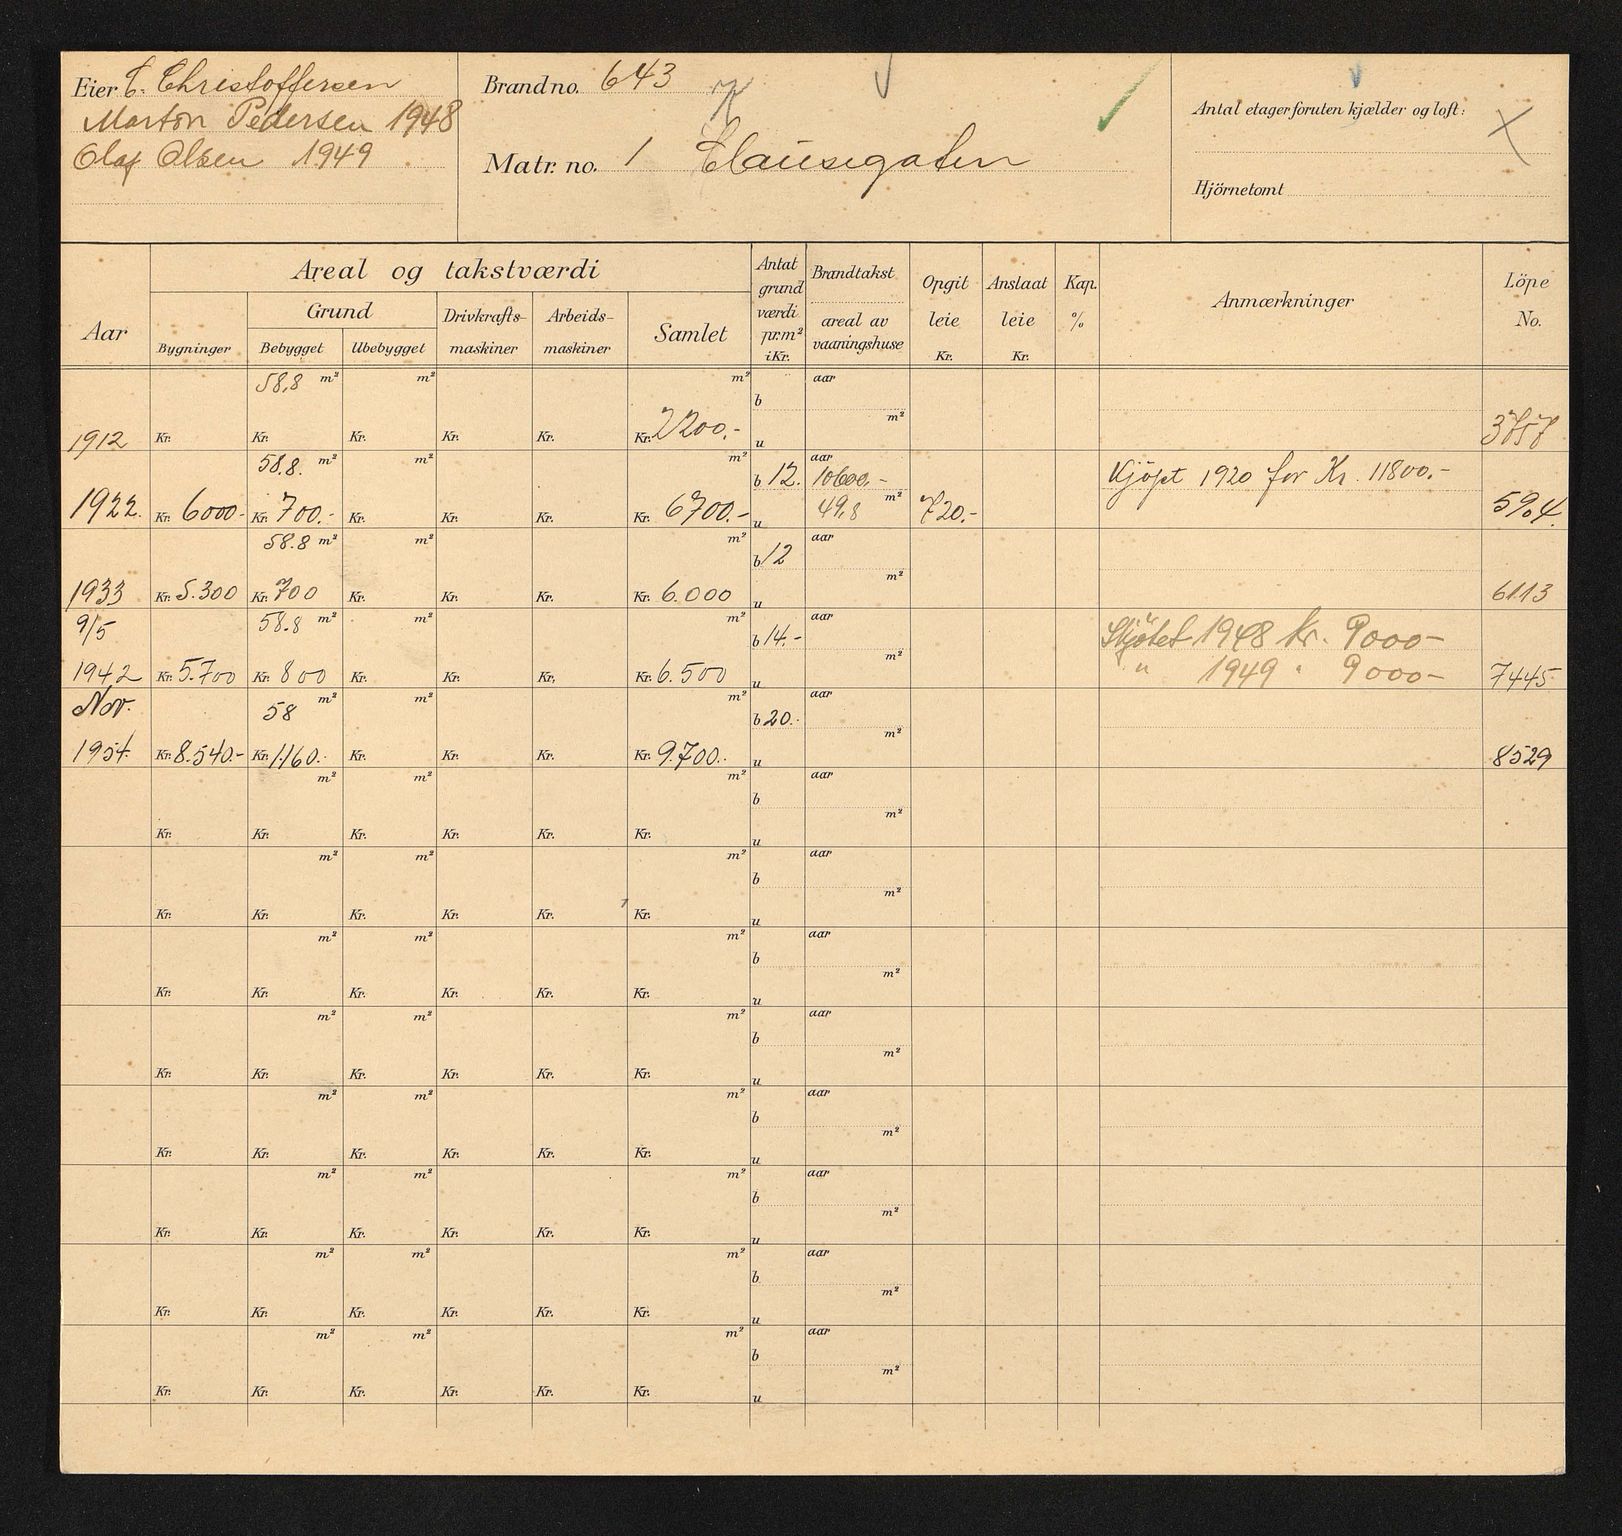 Eier C. Christoffersen
Marton Pedersen 1948
Olaf Olsen 1949
Brandno. 643
Matr. no. 1 Clausegaten
Antal etager foruten kjælder og loft:
Hjörnetomt
Aar
Areal og takstværdi
Grund
Bygninger
Bebygget
Ubebygget
Drivkrafts-
maskiner
Arbeids-
maskiner
Samlet
Antat
grund
værdi
pr.m²
i Kr.
Brandtakst
areal av
vaaningshuse
Opgit
leie
Kr.
Anslaat
leie
Kr.
Kap.
%
Anmærkninger
Löpe
No.
58,8 m² m² m² aar
b
m²
1912 Kr. Kr. Kr. Kr. Kr. Kr. 2200.- u 3757
58.8. m² m² m² aar
b 12. 10600.- Kjöpt 1920 for Kr. 11800.-
1922. Kr. 6000.- Kr. 700.- Kr. Kr. Kr. Kr. 6700.- u 49,8 m² 720.- 5904.
58.8 m² m² m² aar
b 12
m²
1933 Kr. 5.300 Kr. 700 Kr. Kr. Kr. Kr. 6.000 u 6113
9/5 58.8 m² m² m² aar
b 14.- Skjötet 1948 kr. 9000-
m²
1942 Kr. 5.700 Kr. 800 Kr. Kr. Kr. Kr. 6.500 u " 1949 " 9000- 7445
Nov. 58 m² m² m² aar
b 20.-
m²
1954. Kr. 8.540.- Kr. 1.160.- Kr. Kr. Kr. Kr. 9.700.- u 8529
m² m² m² aar
b
m²
Kr. Kr. Kr. Kr. Kr. Kr. u
m² m² m² aar
b
m²
Kr. Kr. Kr. Kr. Kr. Kr. u
m² m² m² aar
b
m²
Kr. Kr. Kr. Kr. Kr. Kr. u
m² m² m² aar
b
m²
Kr. Kr. Kr. Kr. Kr. Kr. u
m² m² m² aar
b
m²
Kr. Kr. Kr. Kr. Kr. Kr. u
m² m² m² aar
b
m²
Kr. Kr. Kr. Kr. Kr. Kr. u
m² m² m² aar
b
m²
Kr. Kr. Kr. Kr. Kr. Kr. u
m² m² m² aar
b
m²
Kr. Kr. Kr. Kr. Kr. Kr. u